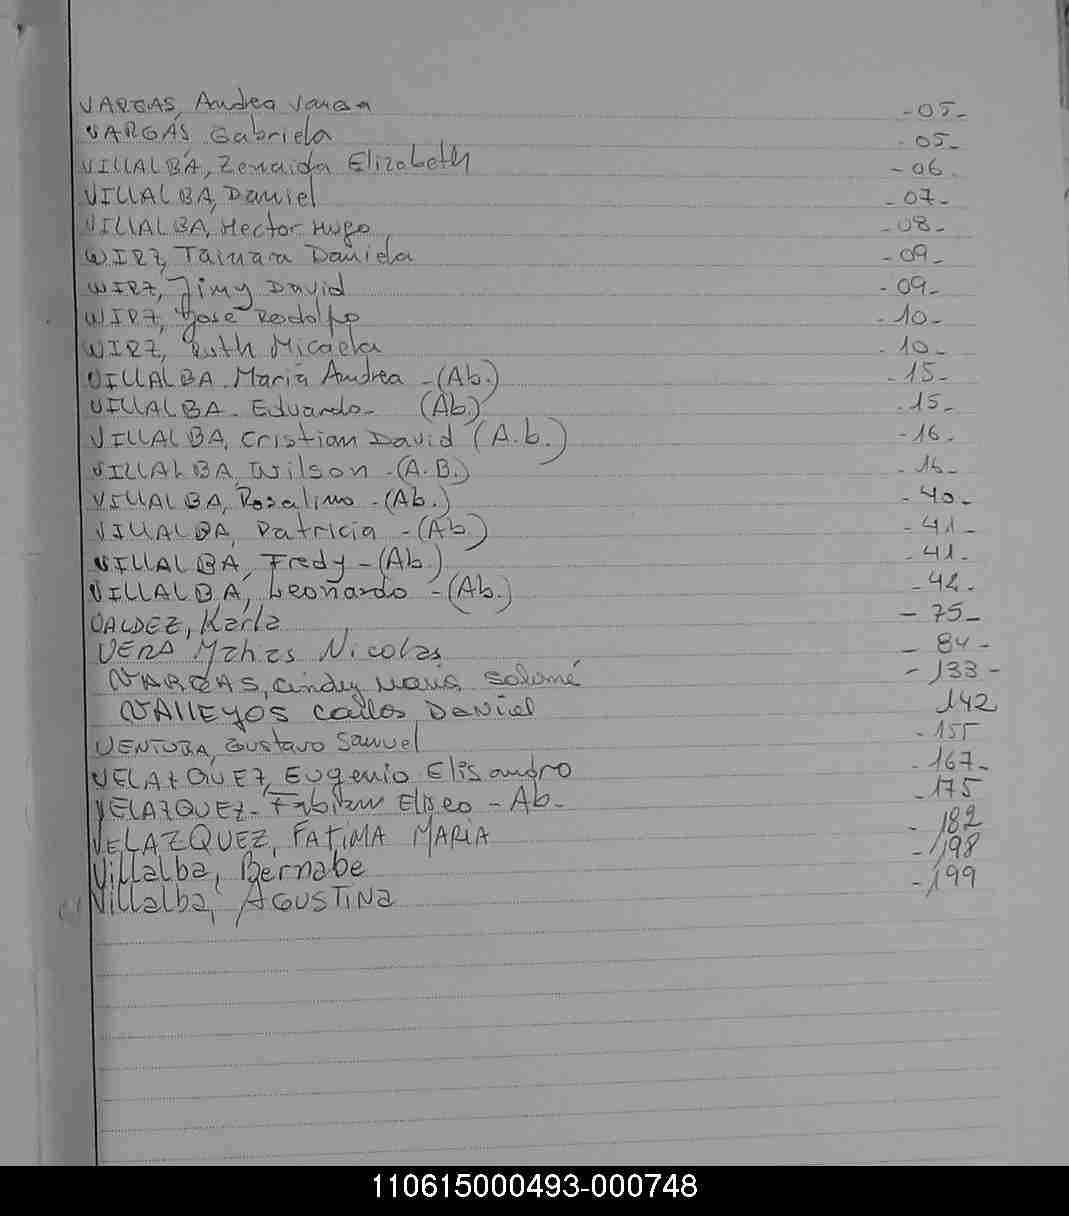 VARGAS, Andrea Vanesa -05-
VARGAS Gabriela -05-
VILLALBA, Zenaida Elizabeth -06
VILLALBA, Daniel -07-
VILLALBA, Hector Hugo -08-
WIRZ, Tainara Daniela -09-
WIRZ, Jimy David -09-
WIRZ, Jose Rodolfo -10-
WIRZ, Ruth Micaela -10-
VILLALBA Maria Andrea -(Ab.) -15-
VILLALBA- Eduardo- (Ab.) -15-
VILLALBA, Cristian David (A.b.) -16-
VILLALBA, Wilson -(A.B.) -16-
VILLALBA, Rosalino -(Ab.) -40-
VILLALBA, Patricia -(Ab.) -41-
VILLALBA, Fredy -(Ab.) -41-
VILLALBA, Leonardo -(Ab.) -42-
VALDEZ, Karla -75-
VERA Mahias Nicolas -84-
VARGAS, Cindy Maria Salomé -133-
VAllEYOS Carlos Daniel 142
VENTURA, Gustavo Samuel -155
VELAZQUEZ, Eugenio Elisandro -167-
VELAZQUEZ- Fabian Eliseo - Ab- -175
VELAZQUEZ, FATIMA MARIA -182
Villalba, Bernabe -198
Villalba, AGUSTINA -199
110615000493-000748